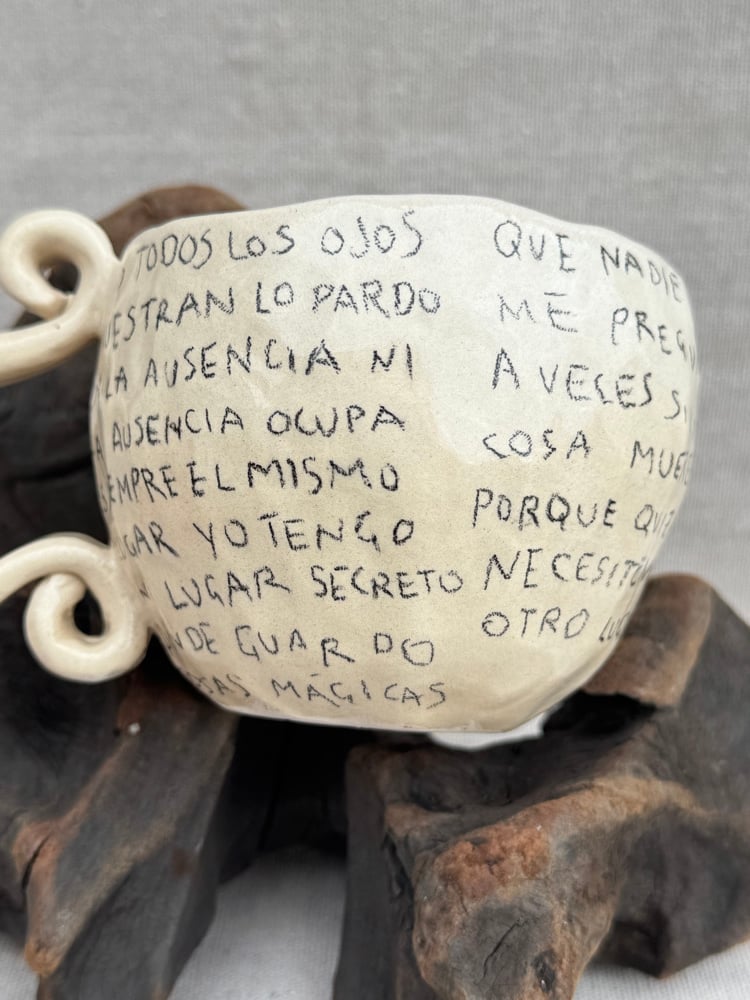 TODOS LOS OJOS
UESTRAN LO PARDO
LA AUSENCIA NI
A AUSENCIA OCUPA
EMPRE EL MISMO
GAR YO TENGO
LUGAR SECRETO
NDE GUARDO
SAS MÁGICAS
QUE NADIE
ME PREGU
A VECES
COSA MUE
PORQUE QUI
NECESITO
OTRO